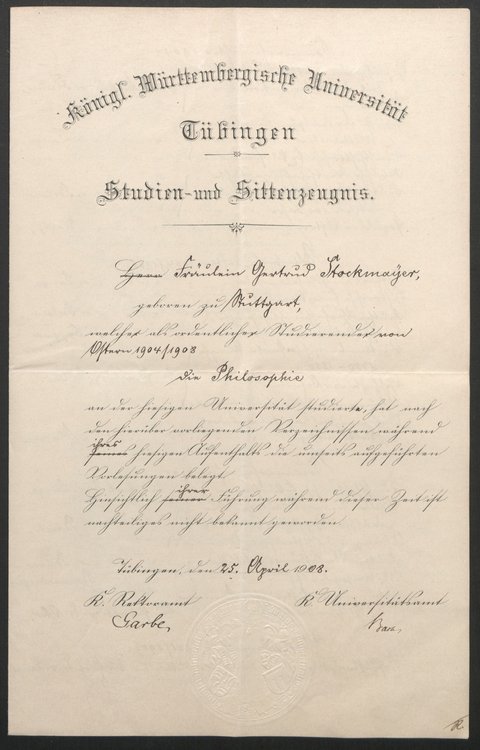 Königl. Württembergische Universität
Tübingen
Studien- und Sittenzeugnis.
Herr Fräulein Gertrud Stockmayer,
geboren zu Stuttgart,
welcher als ordentlicher Studierender von
Ostern 1904/1908
die Philosophie
an der hiesigen Universität studierte, hat nach
den hierüber vorliegenden Verzeichnissen während
ihres
seines hiesigen Aufenthalts die umseits aufgeführten
Vorlesungen belegt.
ihrer
Hinsichtlich seiner Führung während dieser Zeit ist
nachteiliges nicht bekannt geworden
Tübingen, den 25. April 1908.
K. Rektoramt K. Universitätsamt
Garbe,